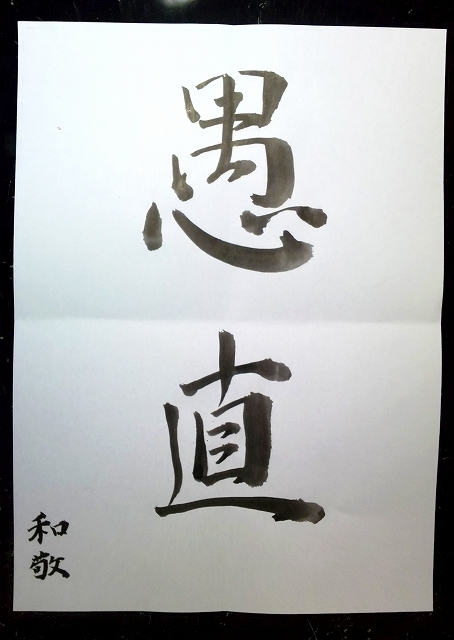 愚直
和敬